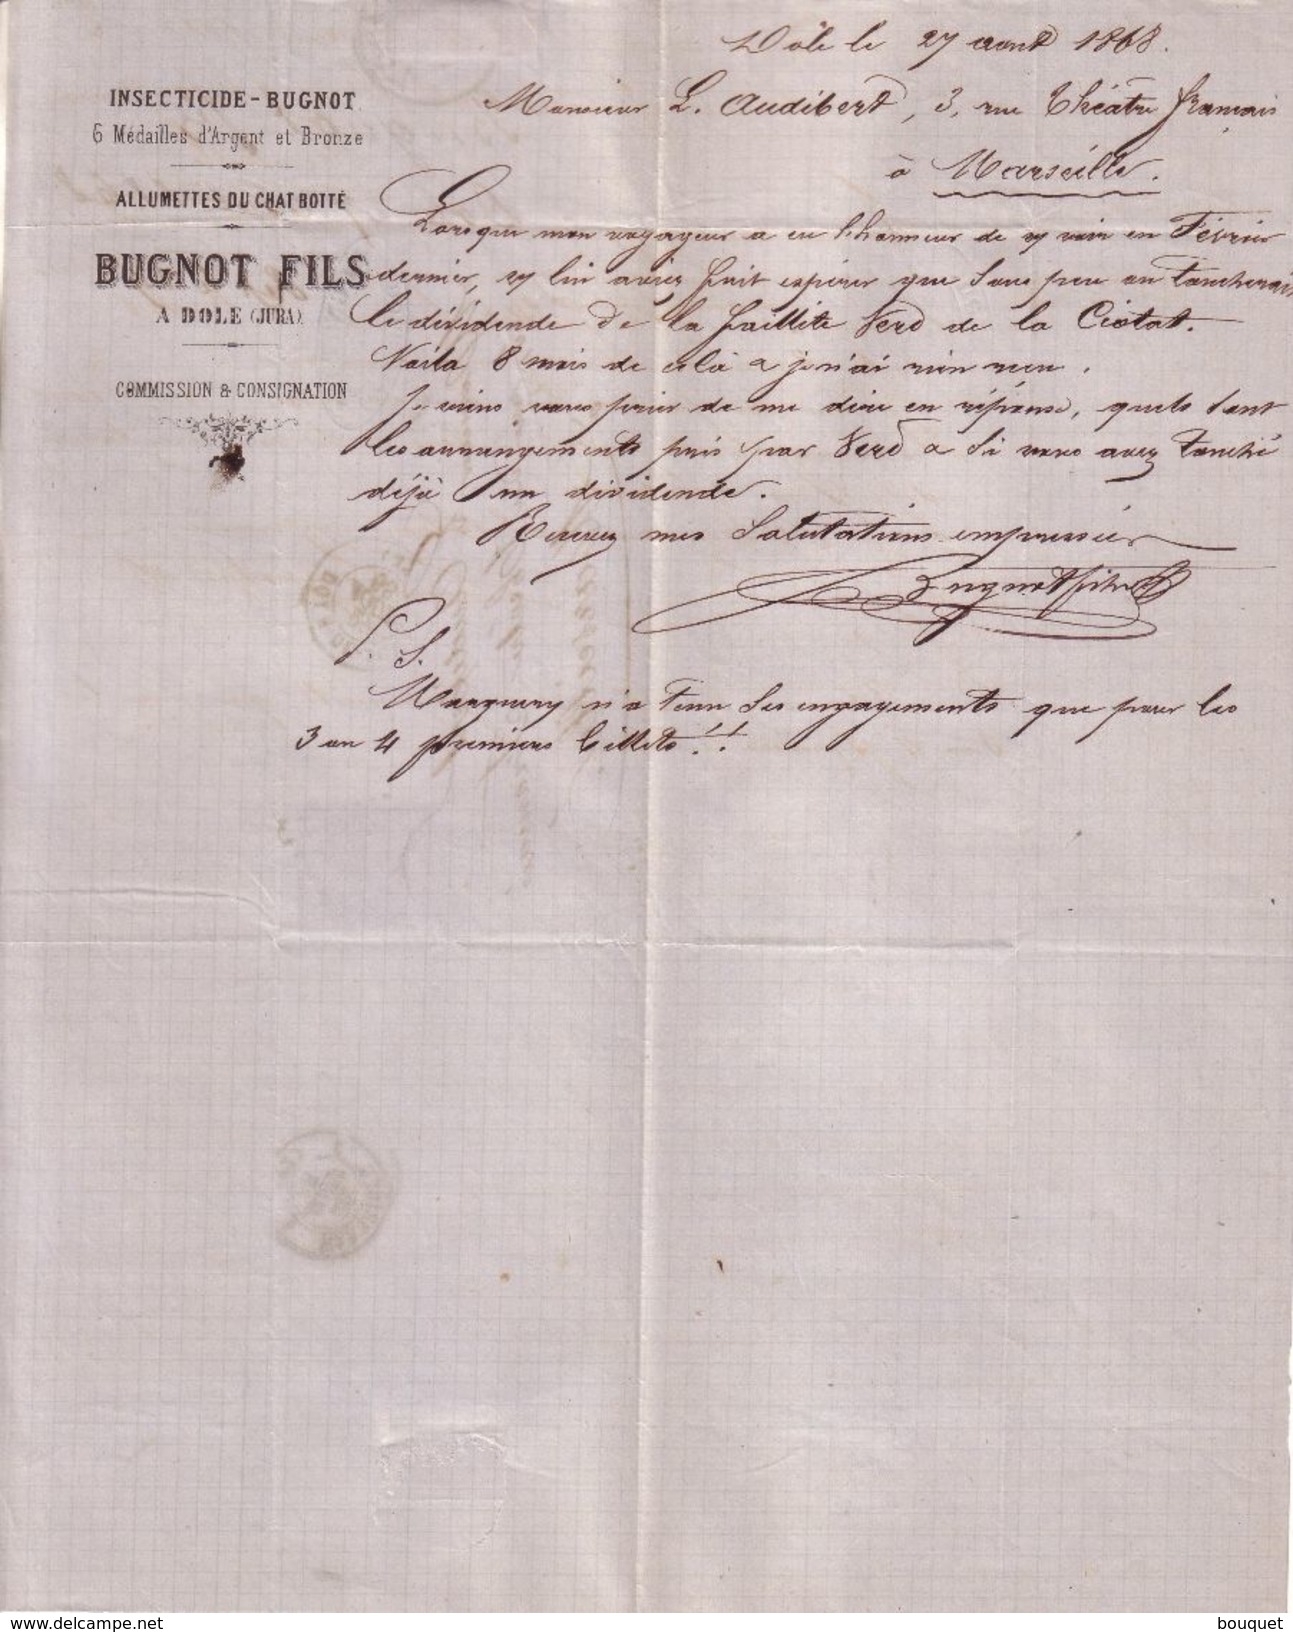 Dôle le 27 aout 1868.
INSECTICIDE - BUGNOT
6 Médailles d'Argent et Bronze
ALLUMETTES DU CHAT BOTTÉ
BUGNOT FILS
A DOLE (JURA)
COMMISSION & CONSIGNATION
Monsieur L. Audibert, 3, rue Théâtre français
à Marseille.
Lorsque mon voyageur a eu l'honneur de vs voir en Février
dernier, vs lui aviez fait espérer que sous peu on toucherait
le dividende de la faillite Verd de la Ciotat.
Voila 8 mois de celà & je n'ai rien reçu.
Je viens vous prier de me dire en réponse, quels sont
les arrangements pris par Verd & si vous avez touché
déjà un dividende.
Recevez mes salutations empressées
Bugnot fils
P. S.
n'a tenu ses engagements que pour les
3 ou 4 premiers billets!!
bouquet
www.delcampe.net